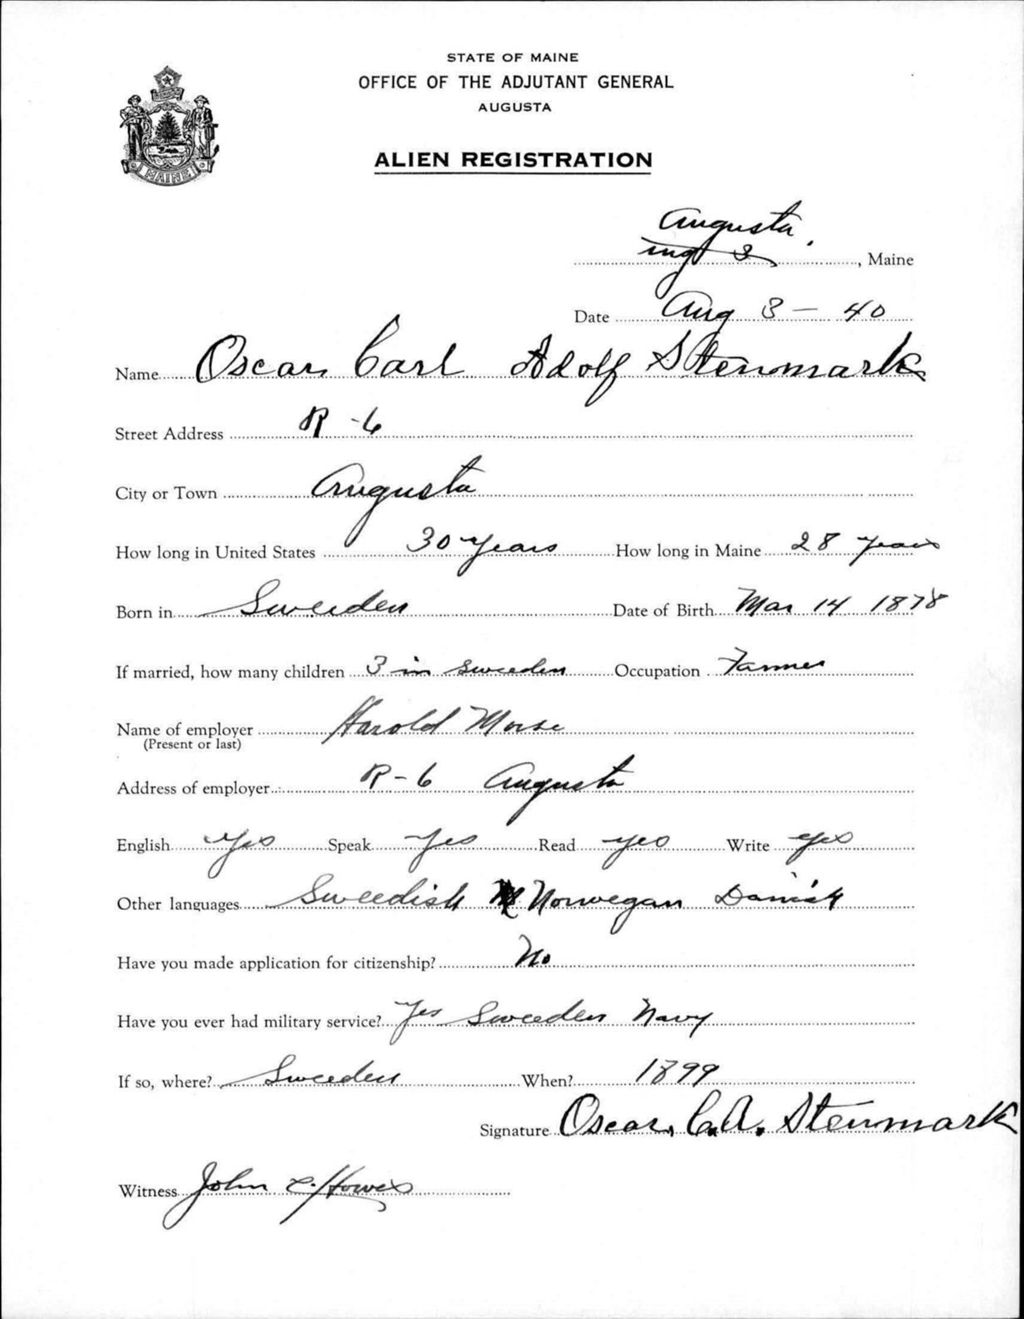 STATE OF MAINE
OFFICE OF THE ADJUTANT GENERAL
AUGUSTA
MAINE
ALIEN REGISTRATION
Augusta,
Aug 3, Maine
Date Aug 3 - 40
Name Oscar Carl Adolf Stenmark
Street Address R-6
City or Town Augusta
How long in United States 30 years How long in Maine 28 years
Born in Sweeden Date of Birth Mar 14 1878
If married, how many children 3 in Sweeden Occupation Farmer
Name of employer Harold Morse
(Present or last)
Address of employer R-6 Augusta
English Yes Speak Yes Read yes Write yes
Other languages Sweedish Norwegan Danish
Have you made application for citizenship? No
Have you ever had military service? Yes Sweeden Navy
If so, where? Sweeden When? 1899
Signature Oscar C.A. Stenmark
Witness John E Howes